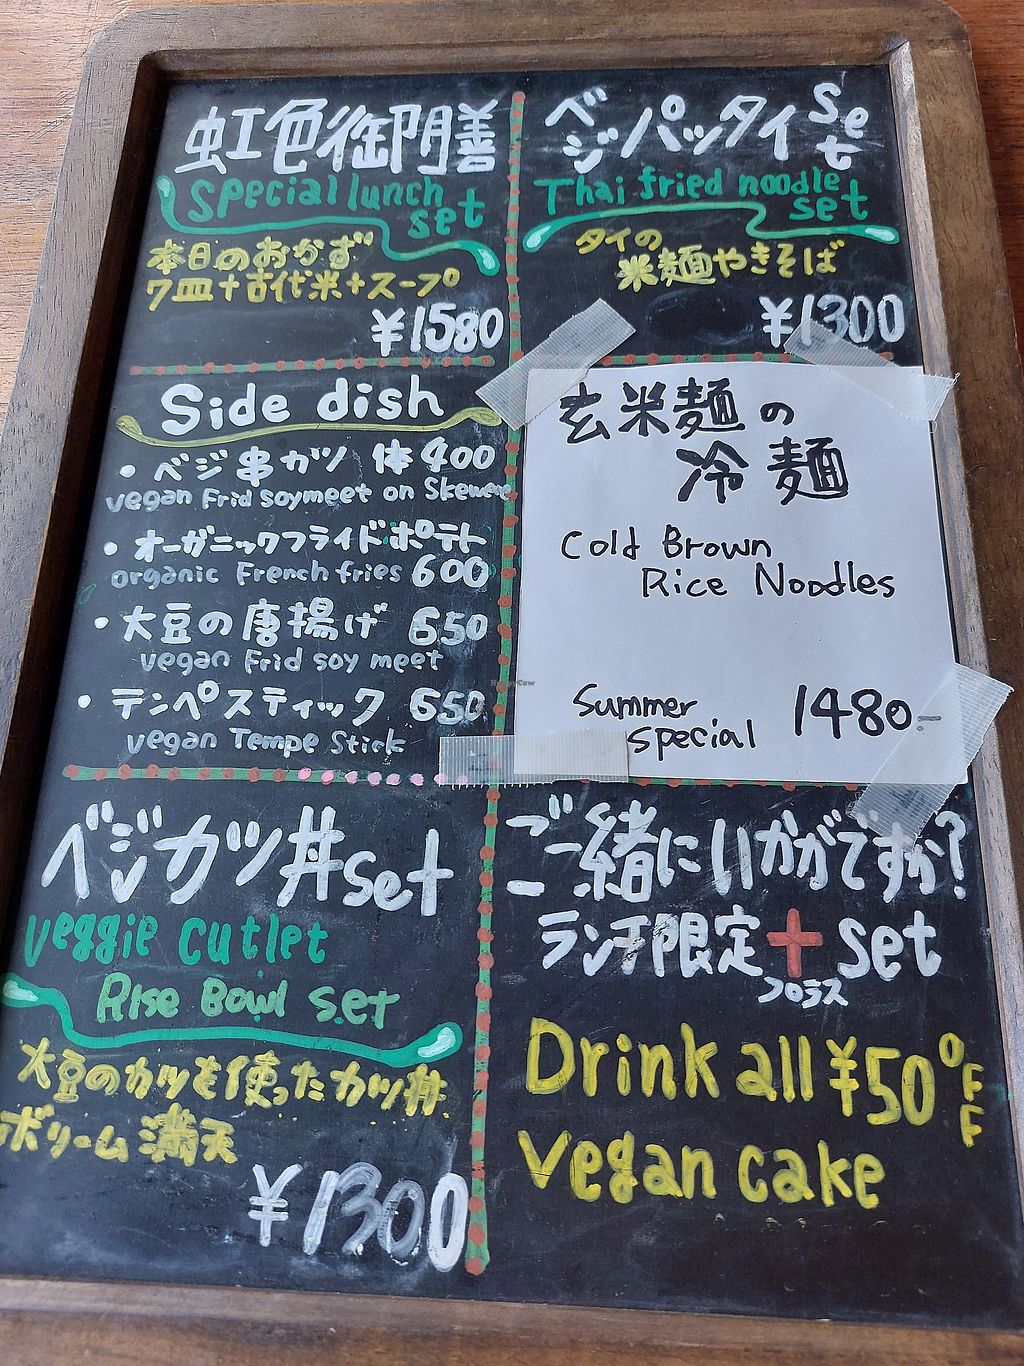 虹色御膳
Special lunch
set
本日のおかず
7皿+古代米+スープ
¥1580
ベジパッタイset
Thai fried noodle
set
タイの
米麺やきそば
¥1300
Side dish
・ベジ串カツ 1本400
vegan Frid soymeet on Skewers
・オーガニックフライドポテト
organic French fries 600
・大豆の唐揚げ 650
vegan Frid soy meet
・テンペスティック 650
vegan Tempe Stick
玄米麺の
冷麺
Cold Brown
Rice Noodles
Summer
special 1480-
ベジカツ丼set
Veggie cutlet
Rise Bowl set
大豆のカツを使ったカツ丼
ボリーム満天
¥1300
ご一緒にいかがですか?
ランチ限定+set
プラス
Drink all ¥50OFF
Vegan cake